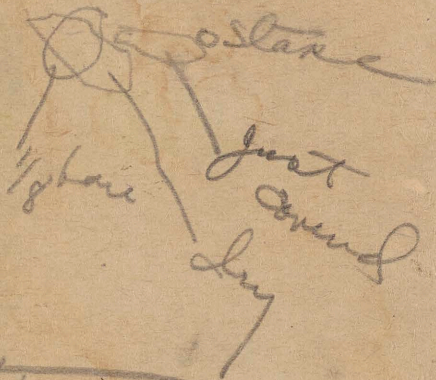 o stake
Just
covered
1/8 bare
Dry